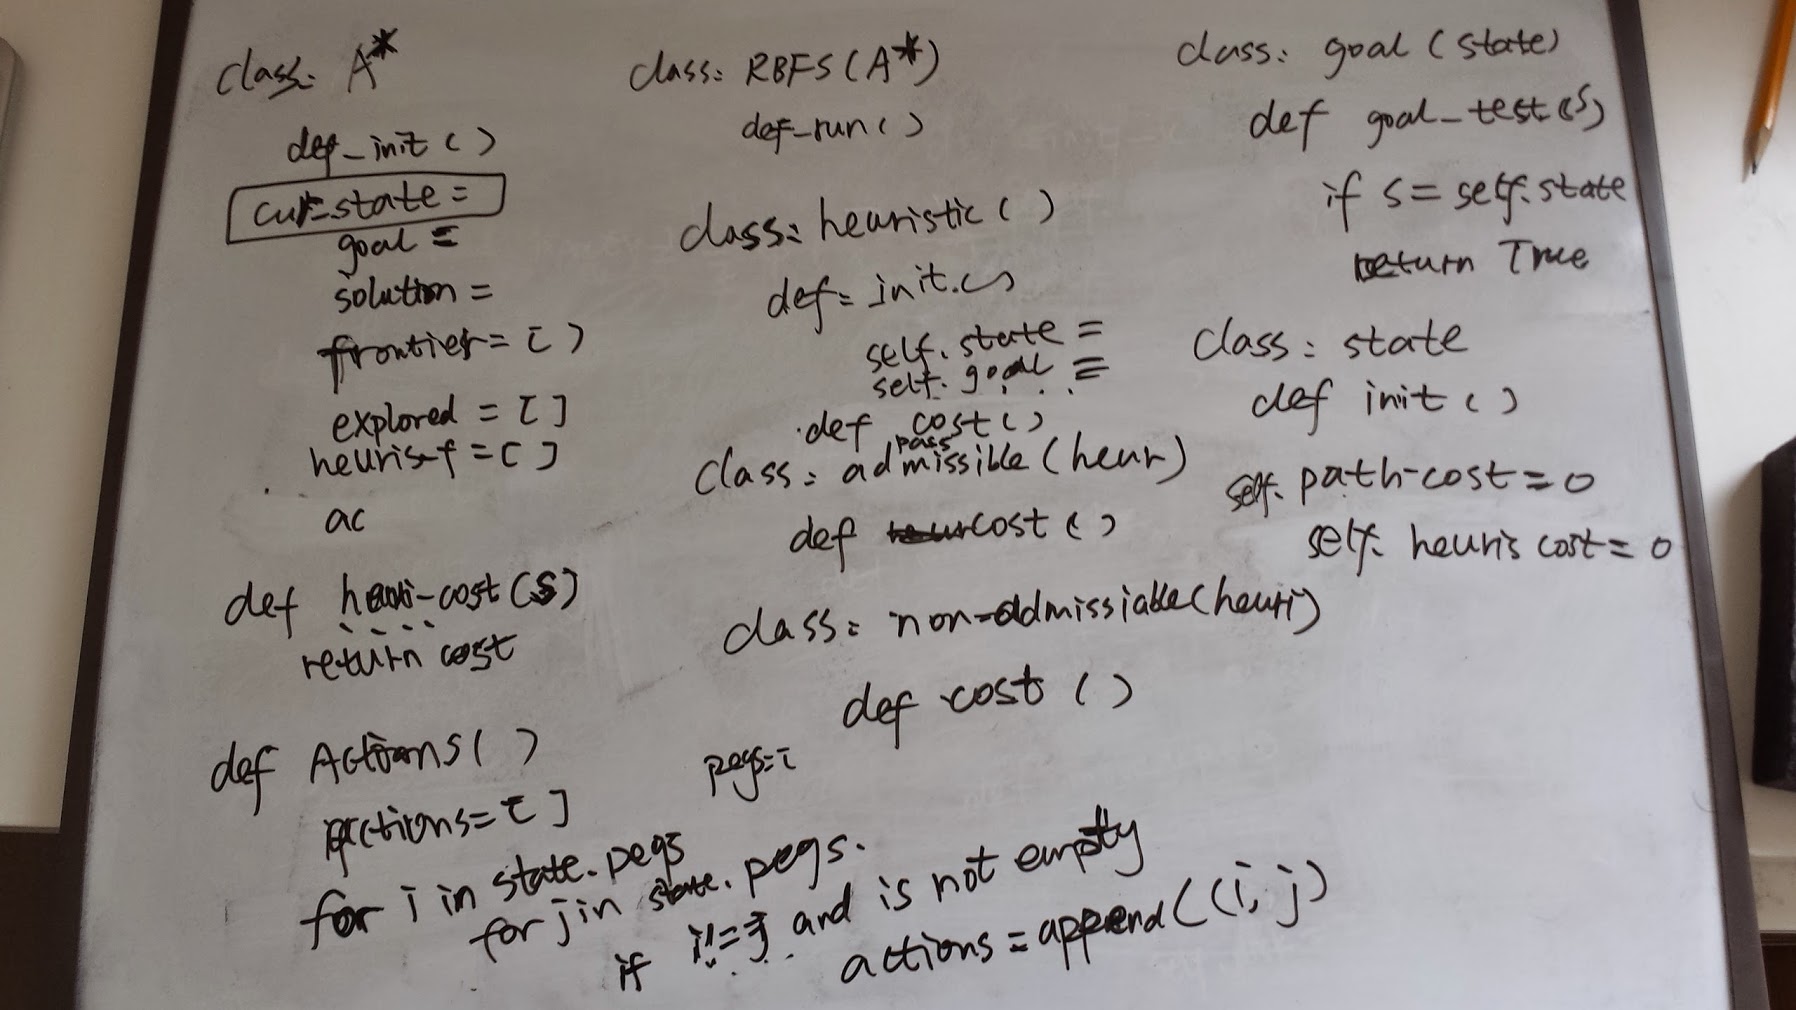 class: A*
def_init ( )
cur_state =
goal =
solution =
frontier = [ )
explored = [ ]
heuris_f = [ ]
ac
def heuri-cost (s)
return cost
def Actions ( )
actions = [ ]
for i in state.pegs
for j in state. pegs.
if i != j and is not empty
actions = append ((i, j)
class: RBFS (A*)
def_run ( )
class: heuristic ( )
def= init. ( )
self. state =
self. goal =
def cost ( )
pass
class: admissible (heur)
def cost ( )
class: non-admissiable (heuri)
def cost ( )
pegs=i
class: goal (state)
def goal_test (s)
if s = self. state
return True
class: state
def init ( )
self. path-cost = 0
self. heuris cost = 0